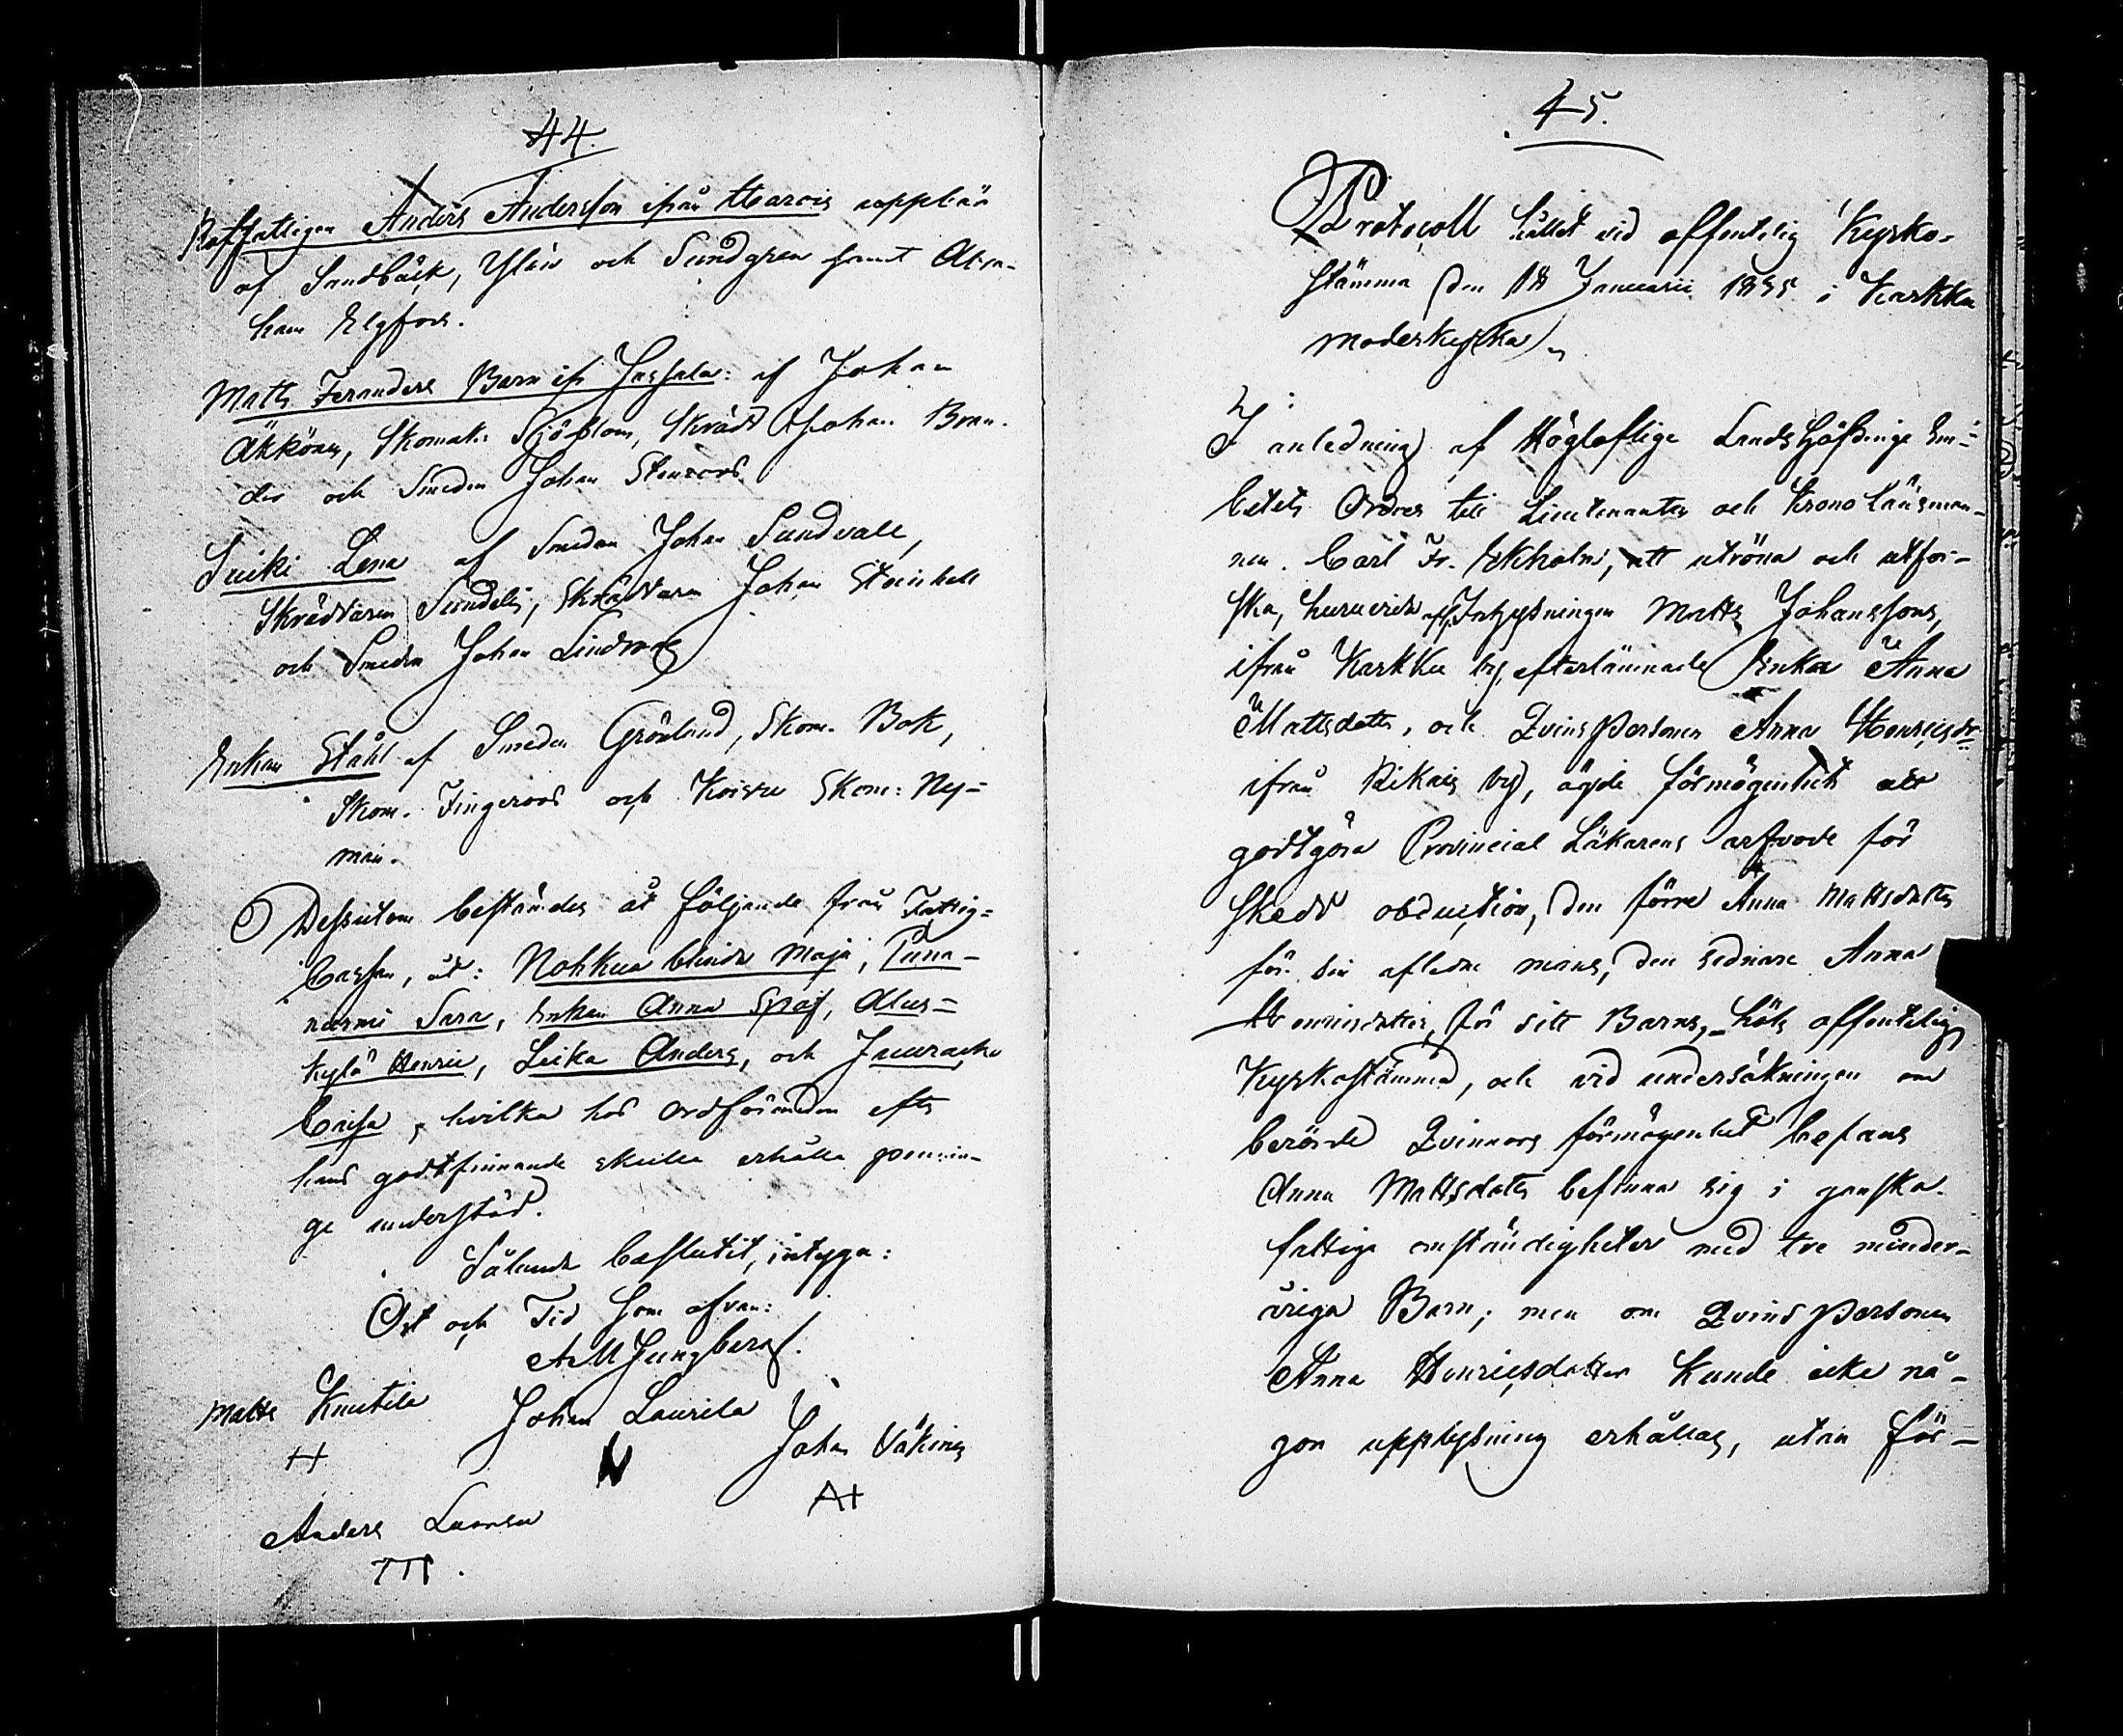 44.
Rotfattigen Anders Andersson ifrån Haarois uppbär
af Sandbäck, Ylén och Sundgren samt Abra-
ham Elgfors.
Matts Feranders Barn ifr. Jassala: af Johan
Äkkönen, Skomak: Sjöblom, Skrädd. Johan Bran-
der och Smeden Johan Stenroos.
Suiki Lena af Smeden Johan Sundvall,
Skräddaren Sundelin, Skräddaren Johan Steinhell
och Smeden Johan Lindroos
Enkan Ståhl af Smeden Grönlund, Skom. Bok,
Skom. Fingerroos och Skom: Ny-
man.
Dessutom bestämdes åt följande från Fattig-
Cassan, åt: Nohkua blinda Maja, Puna-
nurmi Sara, Enkan Anna Spåf, Alus-
kylä Henric, Leika Anders, och
Caisa, hvilka hos Ordföranden efter
hans godtfinnande skulle erhålla pennin-
ge understöd.
Sålunda beslutit, intyga:
Ort och Tid som ofvan:
A. M. Ljungberg.
Matts Knutila Johan Laurila
Johan Väkinen
Anders
45.
Protocoll hållet vid offentelig Kyrko-
stämma den 18 Januarii 1835 i Karkku
moderkyrka
I anledning af Höglofliga Landshöfdinge Em-
betets Ordres till Lieutenanten och Kronolänsman-
nen Carl Fr. Ekholm, att utröna och utfor-
ska, huruvida afl. Inhysningen Matts Johanssons,
ifrån Karkku by, efterlämnade Enka Anna
Mattsdotter, och Qvinspersonen Anna Henricsdr
ifrån Riikais by, ägde förmögenhet att
godtgöra Provincial Läkarens arfvode för
skedd obduction, den förre Anna Mattsdotter
för sin afledne mans, den sednare Anna
Henricsdotter, för sitt Barns, hölts offentelig
Kyrkostämma, och vid undersökningen om
berörde Qvinnors förmögenhet befans
Anna Mattsdotter befinna sig i ganska
fattiga omständigheter med tre minder-
åriga Barn; men om Qvinspersonen
Anna Henricsdotter kunde icke nå-
gon upplysning erhållas, utan för-